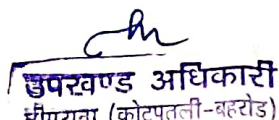 उपखण्ड अधिकारी
(कोटपूतली-बहरोड)